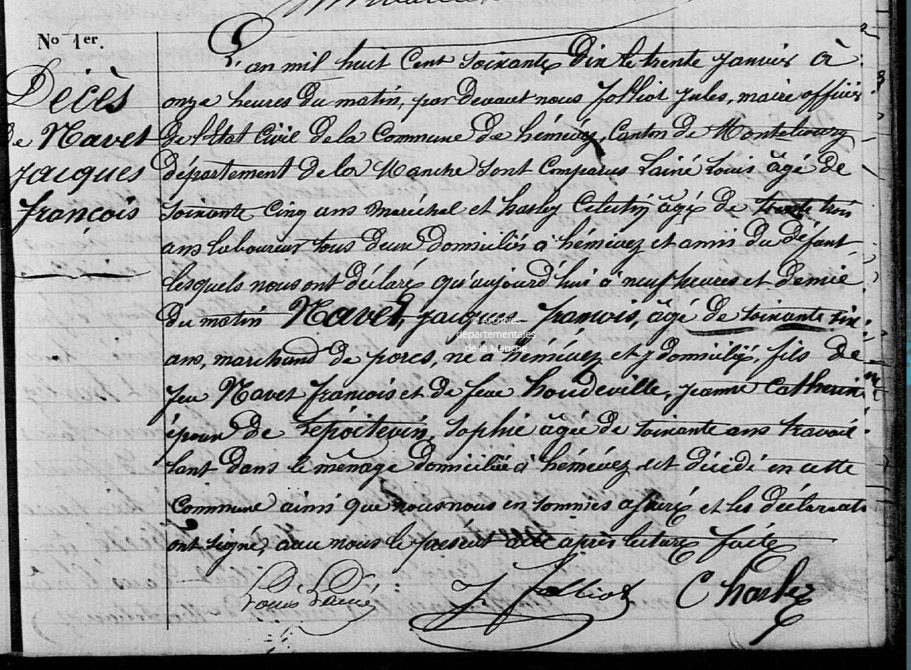 No 1er.
Décès
de Navet
Jacques
françois
L'an mil huit Cent soixante Dix le trente Janvier à
onze heures du matin, par devant nous Jolliot Jules, maire officier
de l'Etat Civil de la Commune de hémévez, Canton de Montebourg
département de la Manche sont comparus Lainé Louis âgé de
soixante Cinq ans maréchal et harley Célestin âgé de trente trois
ans laboureur tous deux domiciliés à hémévez et amis du défunt
lesquels nous ont déclaré qu'aujourd'hui à neuf heures et demie
du matin Navet, Jacques françois, âgé de soixante six
ans, marchand de porcs, né à hémévez et y domicilié, fils de
feu Navet françois et de feue houdeville, Jeanne Catherine
époux de Lepoitevin, Sophie âgée de soixante ans travail
lant dans le ménage domiciliée à hémévez est décédé en cette
Commune ainsi que nous nous en sommes assuré et les déclarants
ont signé, avec nous le présent acte après lecture faite
Louis Lainé J. Jolliot C harley
archives
départementales
de la Manche